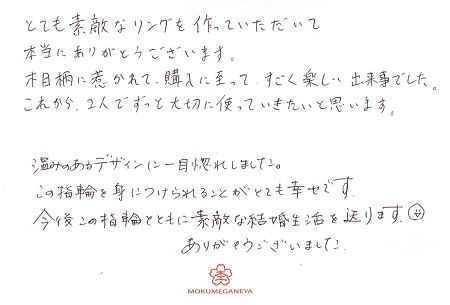 とても素敵なリングを作っていただいて
本当にありがとうございます。
木目柄に惹かれて、購入に至って、すごく楽しい出来事でした。
これから、2人でずっと大切に使っていきたいと思います。
温みのあるデザインに一目惚れしました。
この指輪を身につけられることがとても幸せです。
今後この指輪とともに素敵な結婚生活を送ります。
ありがとうございました。
MOKUMEGANEYA